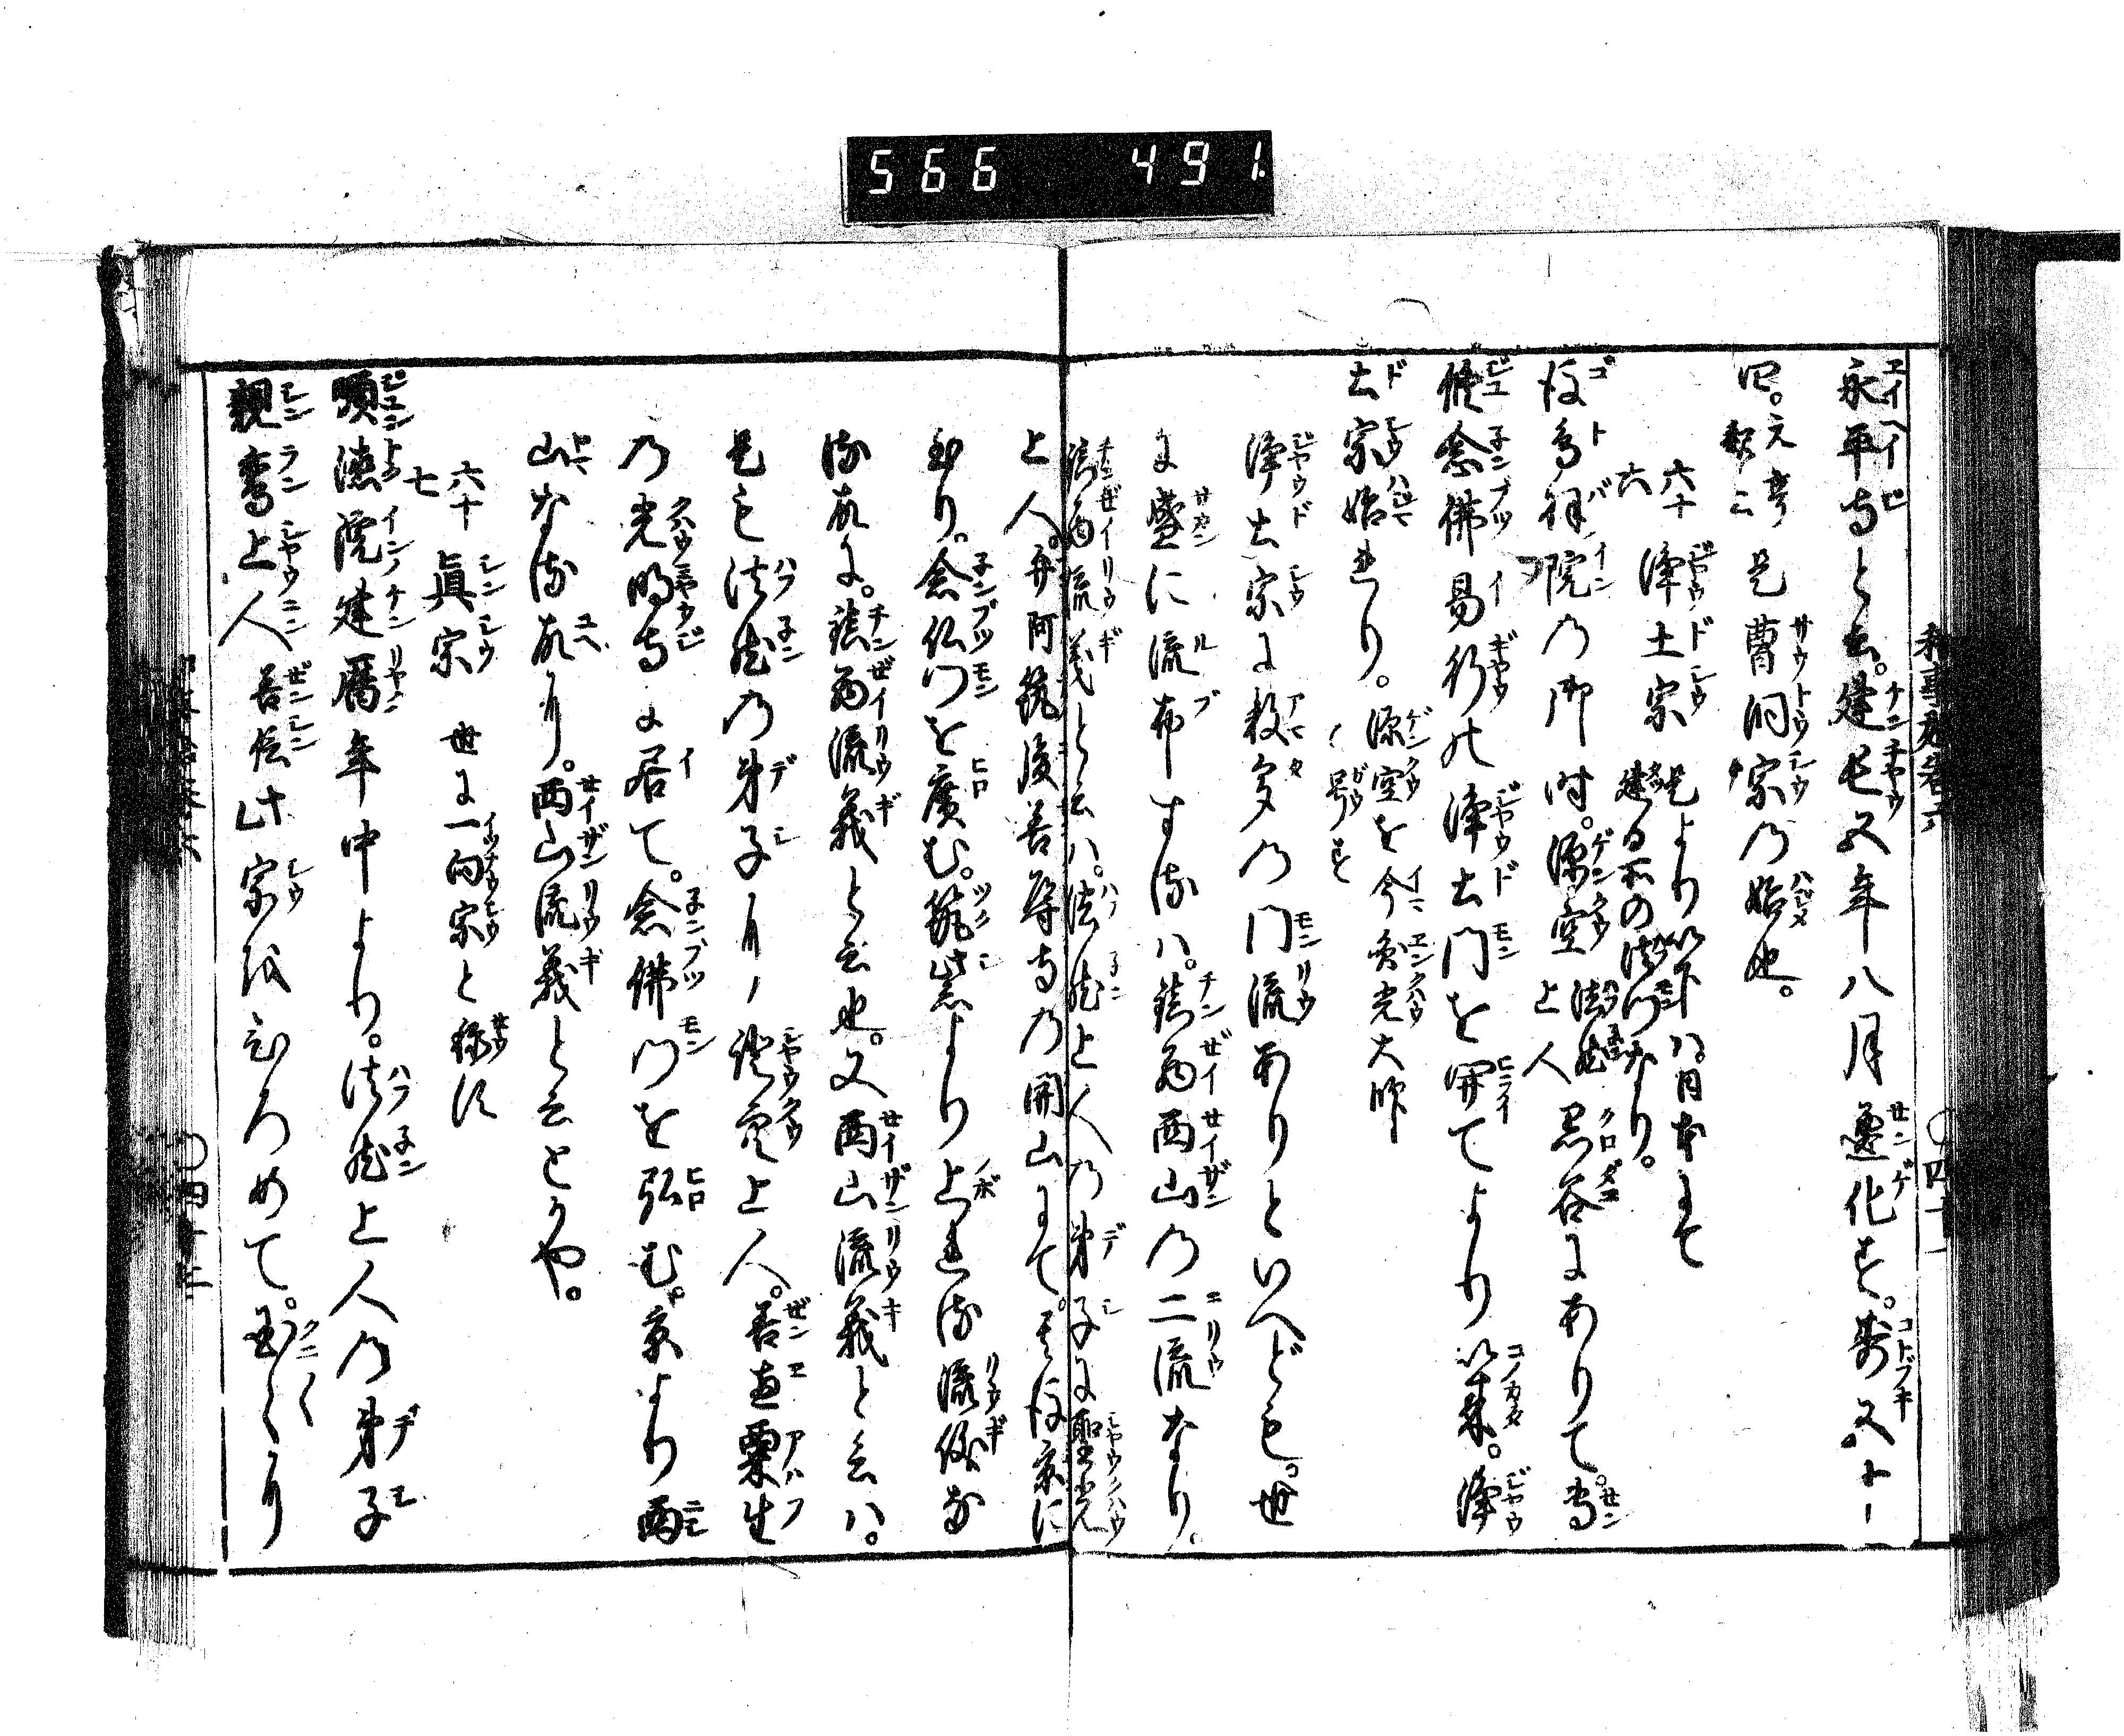 566 491.
永平寺と云。建長五年八月遷化す。寿五十一
四。元亨釈二 是曹洞宗の始也。
六十六 浄土宗 是より以下ハ日本にて建る所の法門なり。
後鳥羽院の御時。源空上人法然黒谷にありて。専
修念仏易行の浄土門を開てより以来。浄
土宗始れり。源空を今円光大師と号す
浄土宗に数多の門流ありといへども。世
に盛に流布するハ。鎮西西山の二流なり。
鎮西流義と云ハ。法然上人の弟子に聖光
上人。弁阿筑後善導寺の開山にて。其後京に
至り。念仏門を広む。筑紫より上れる流義な
る故に。鎮西流義と云也。又西山流義と云ハ。
是も法然の弟子に証空上人。善恵粟生
の光明寺に居て。念仏門を弘む。京より西
山なる故に。西山流義と云とかや。
六十七 真宗 世に一向宗と称す
順徳院建暦年中より。法然上人の弟子
親鸞上人善信此宗をひろめて。国々に